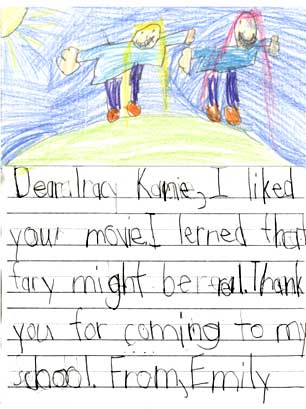 Dear Tracy Kane, I liked
your movie. I lerned that
fary might be real. Thank
you for coming to my
school. From, Emily